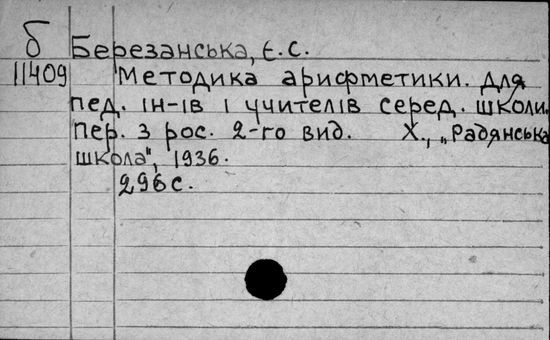 б Березанська, Є. С.
11409 Методика арифметики. Для
пед. ін-ів і учителів серед. школи.
Пер. з рос. 2-го вид. Х., „Радянська
школа", 1936.
296 с.